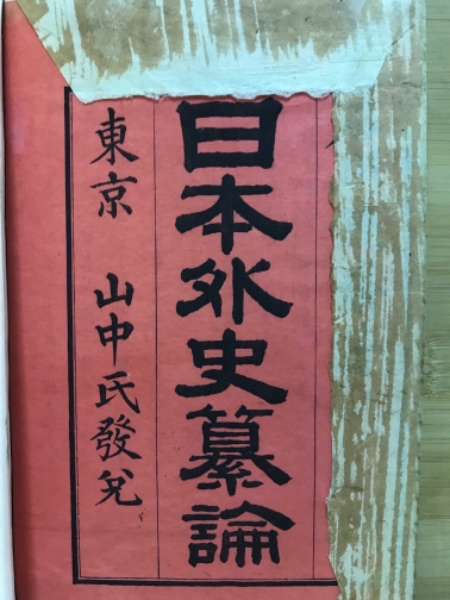 日本外史纂論
東京 山中氏發兌